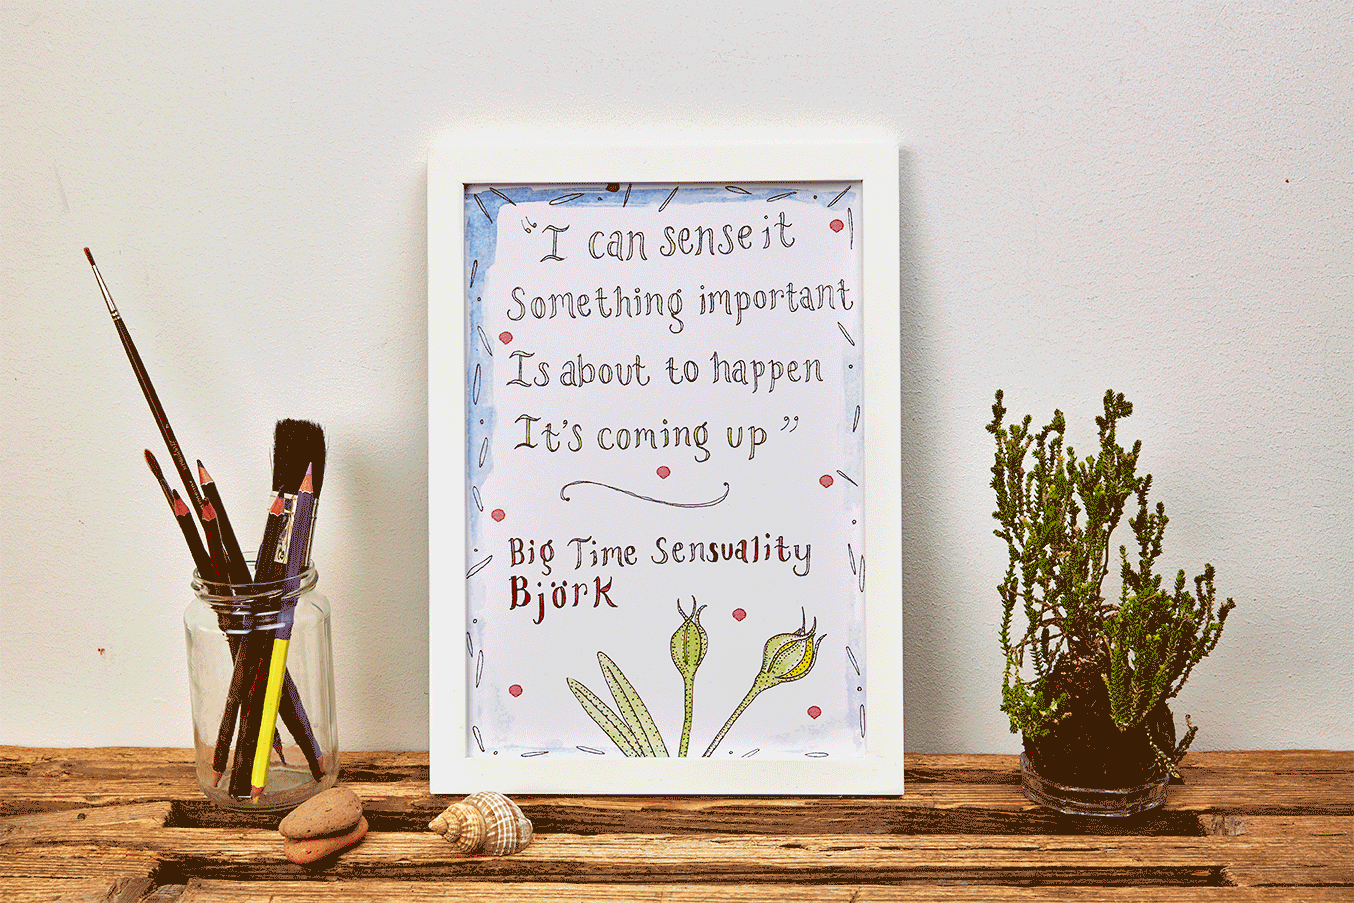 “I can sense it
Something important
Is about to happen
It's coming up”
Big Time Sensuality
Björk